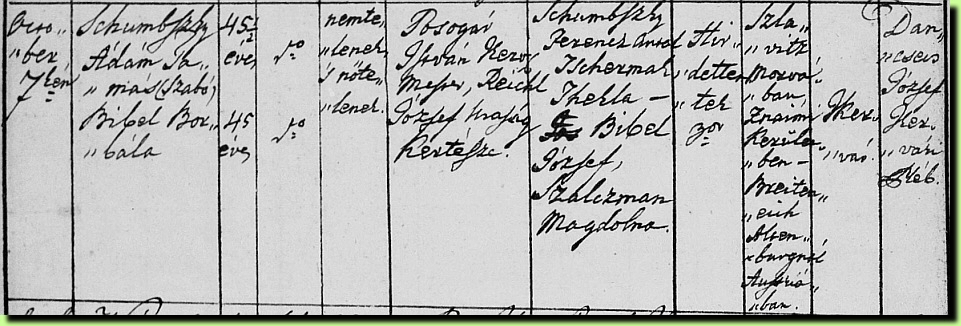 Octo„
„ber
7kén
Schumbszky
Ádám Ta„
„más (Szabó)
Bibel Bor„
„bála
45
éves
45
éves
ro
ro
nemte„
„lenek,
's nőte„
„lenek.
Posogár
István Keres
Mester, Reichl
József Uraság
Kertésze.
Schumbszky
Ferencz Antal
Tschermak
Thekla –
Bibel
József,
Szalczman
Magdolna
Hir„
„dettet„
„tek
3or
Szla„
„vitz
Morvá„
„ban,
Znaimi
Kerüle„
„ben –
Breiten„
„eich
Alten„
„burgnál
Austriá„
„ban.
Ker„
„vár.
Dan„
„csecs
József
Her„
„vári
Pléb.